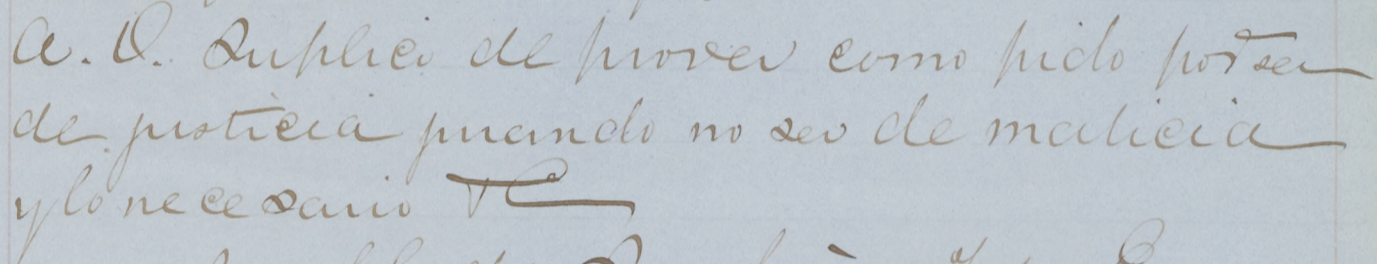 A. V. Suplico de prover como pido por ser
de justicia jurando no ser de malicia
y lo necesario &